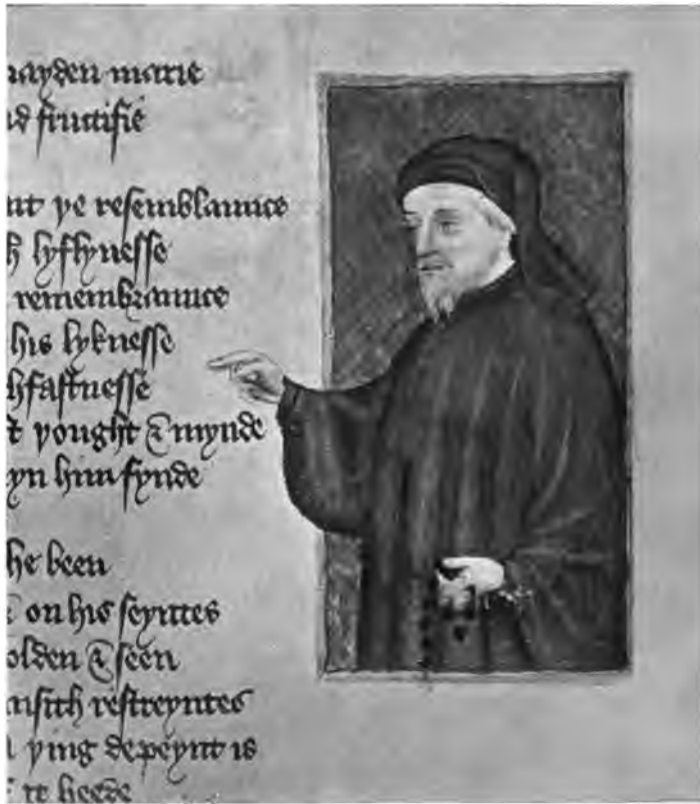 ayden marie
d fructifie
nt þe resemblaunce
h lyflynesse
remembraunce
his lyknesse
hfastnesse
t þought & mynde
yn him fynde
he been
& on his seyntes
olden & seen
ausith restreyntes
a þing depeynt is
f it heede